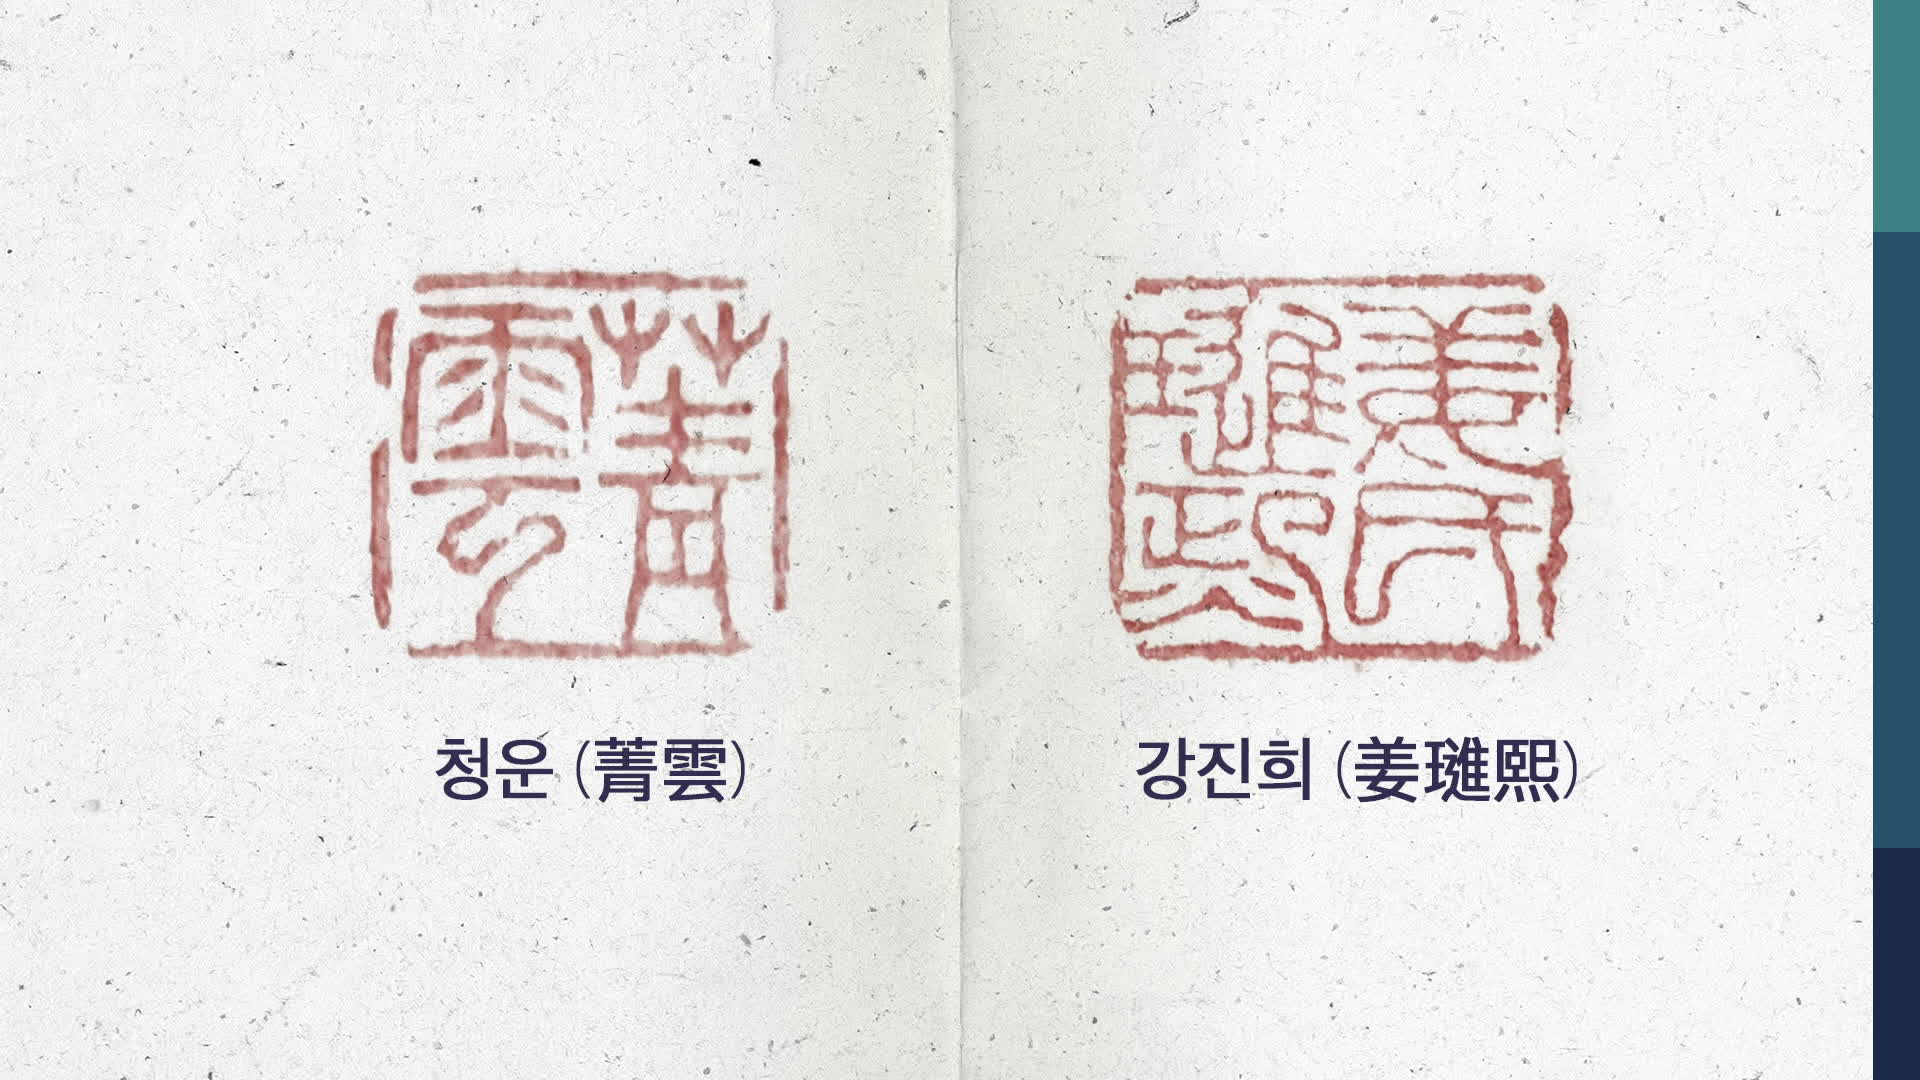 菁雲
청운 (菁雲)
강진희 (姜璡熙)